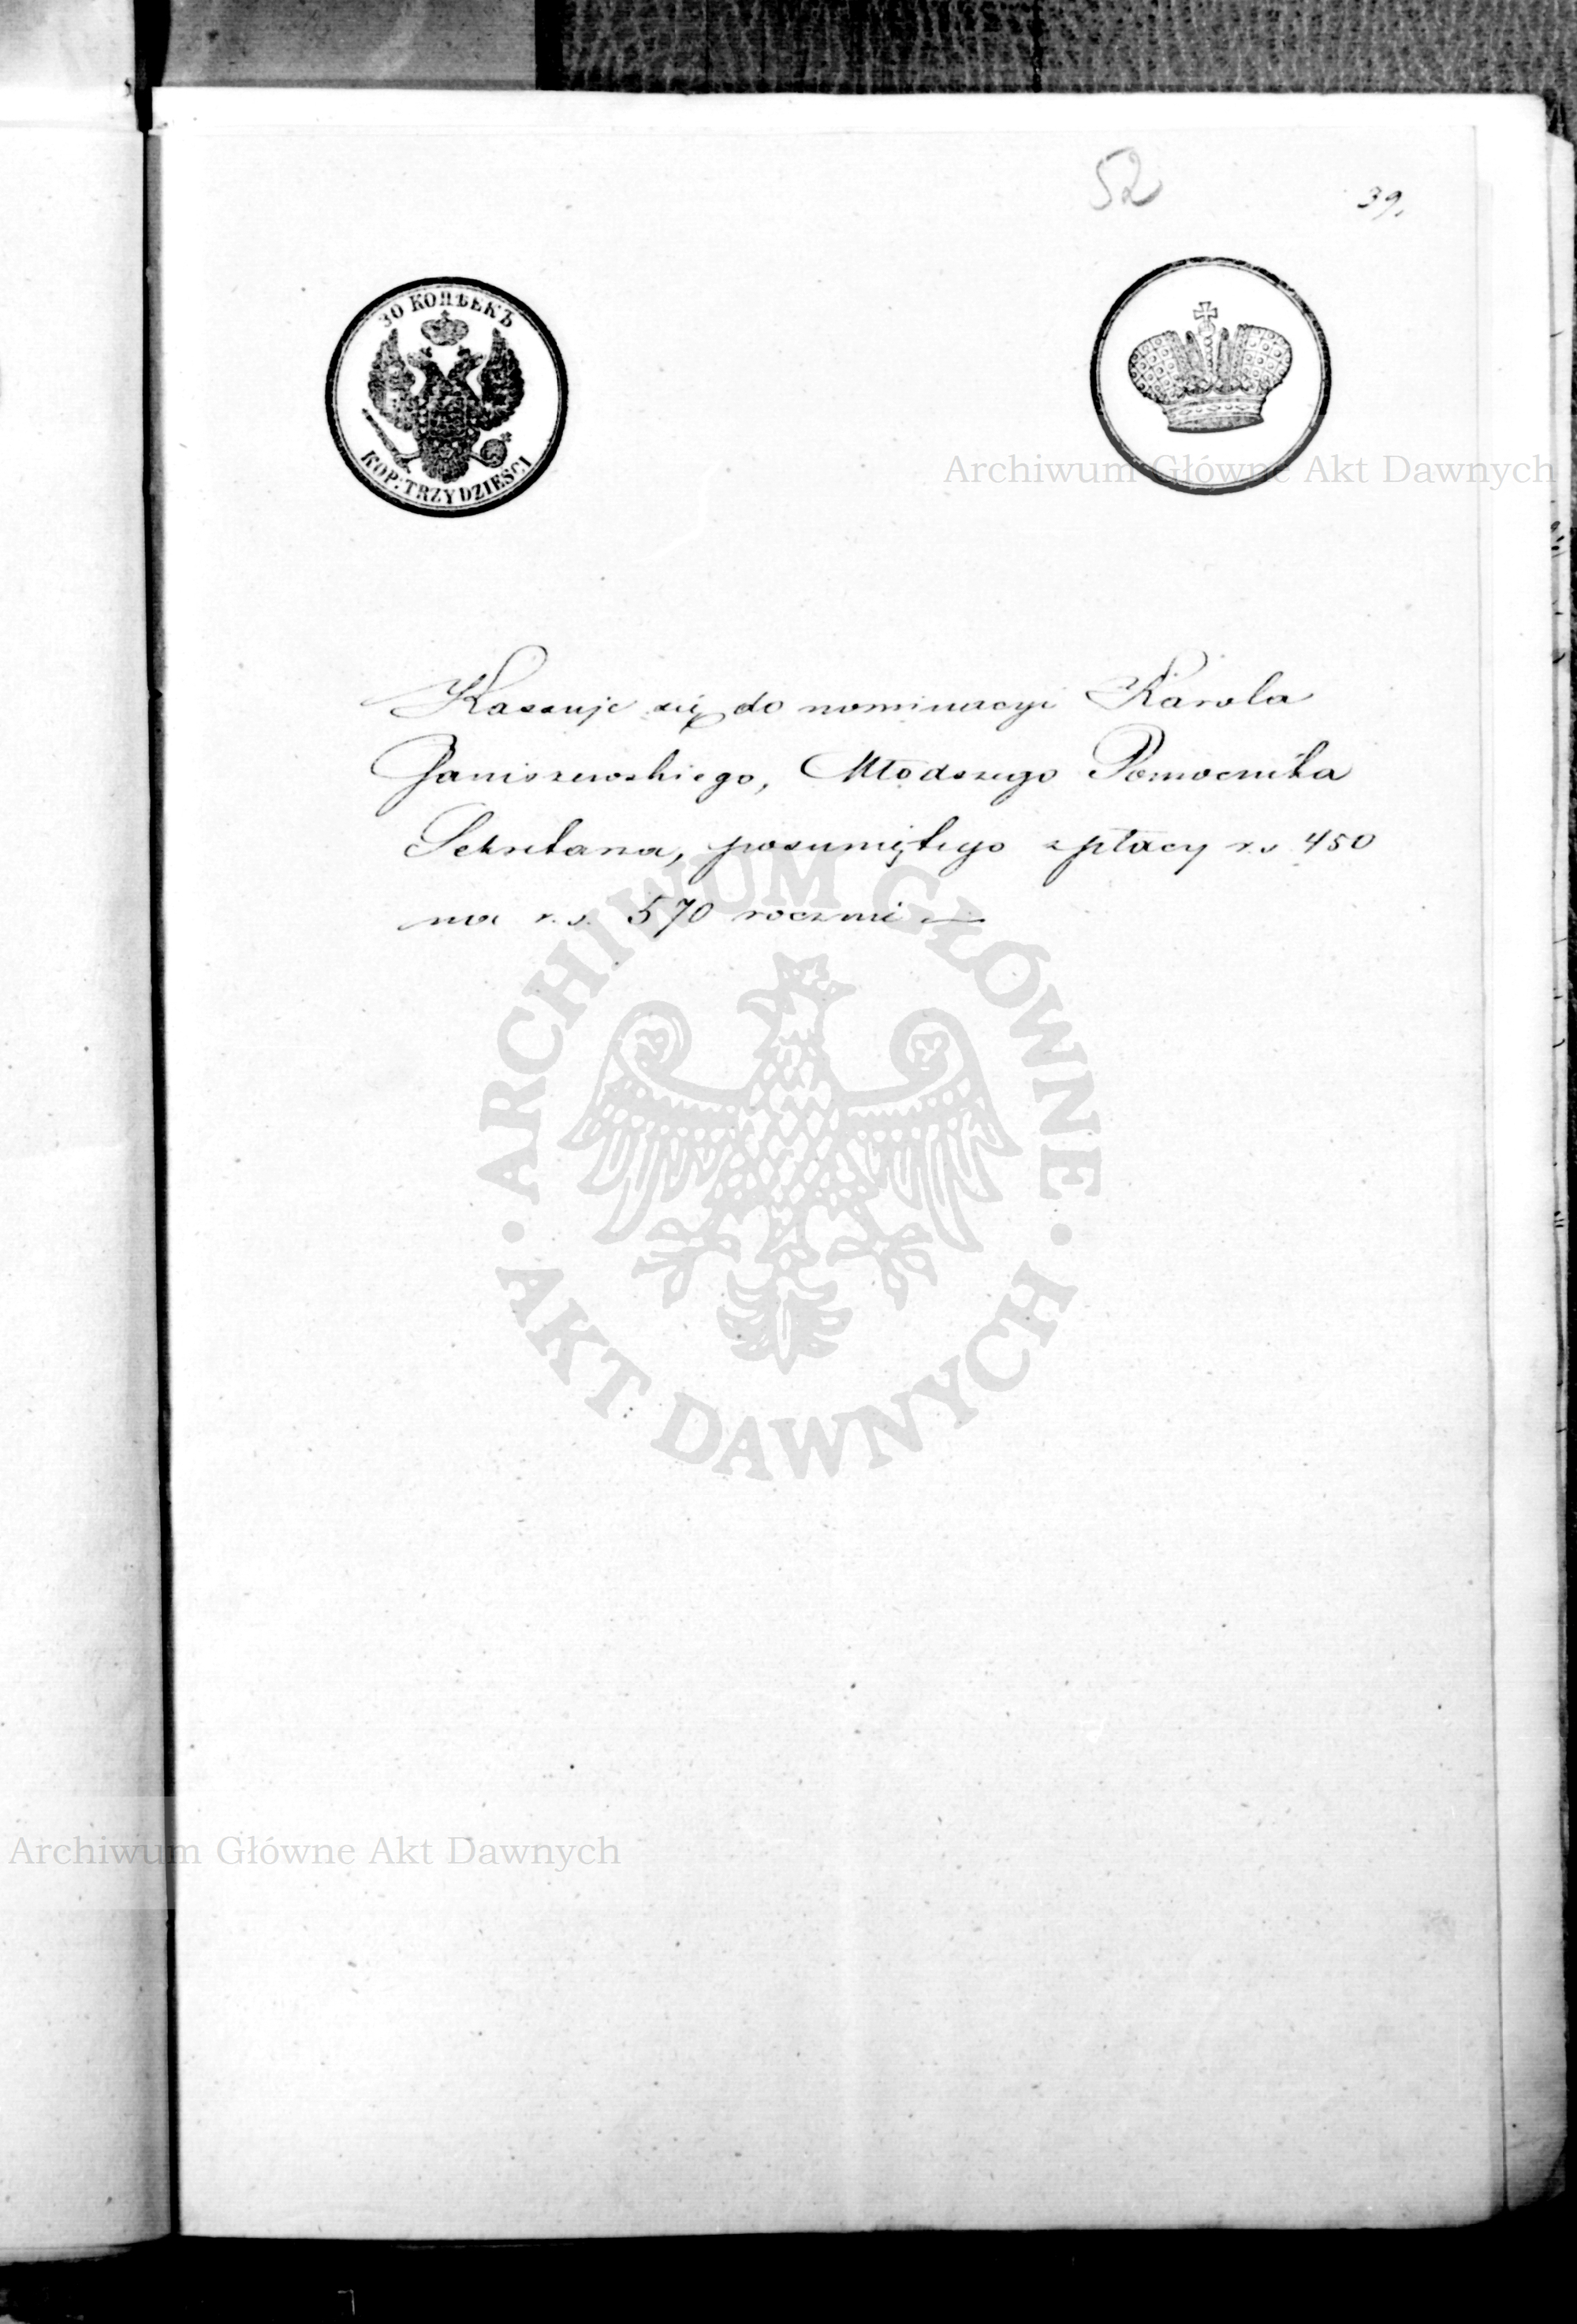 52
39.
30 КОПѢЕКЪ
KOP: TRZYDZIEŚCI
Archiwum Główne Akt Dawnych
Kassuje się do nominacyi Karola
Janiszewskiego, Młodszego Pomocnika
Sekretarza, posuniętego z płacy r.s. 450
na r.s. 570 rocznie
ARCHIWUM GŁÓWNE
AKT DAWNYCH
Archiwum Główne Akt Dawnych